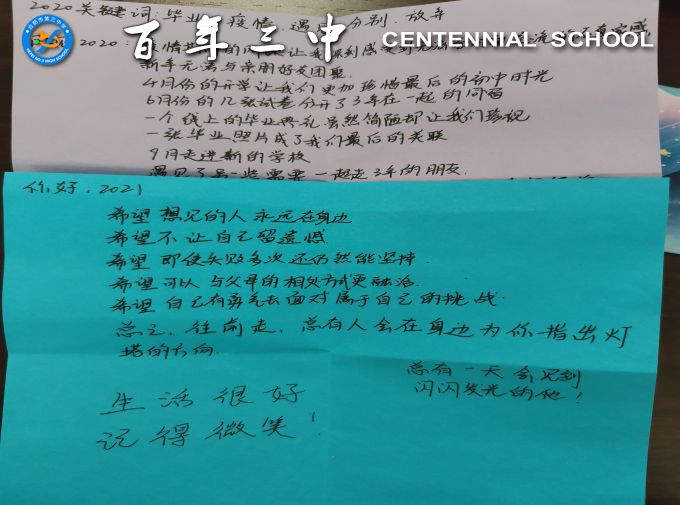 2020关键词:毕业 疫情 遇见 分别 放弃
百年三中 CENTENNIAL SCHOOL
2020:
新年无法与亲朋好友团聚
4月份的开学让我们更加珍惜最后的初中时光
6月份的几张试卷分开了3年在一起的同窗
一个线上的毕业典礼虽然简陋却让我们珍视
一张毕业照片成了我们最后的关联
9月走进新的学校
遇见了另一些需要一起走3年的朋友
你好,2021
希望 想见的人永远在身边
希望 不让自己留遗憾
希望 即使失败多次还仍然能坚持
希望 可以与父母的相处方式更融洽
希望 自己有勇气去面对属于自己的挑战
总之,往前走,总有人会在身边为你指出灯
塔的方向
总有一天会见到
闪闪发光的他!
生活很好
记得微笑!